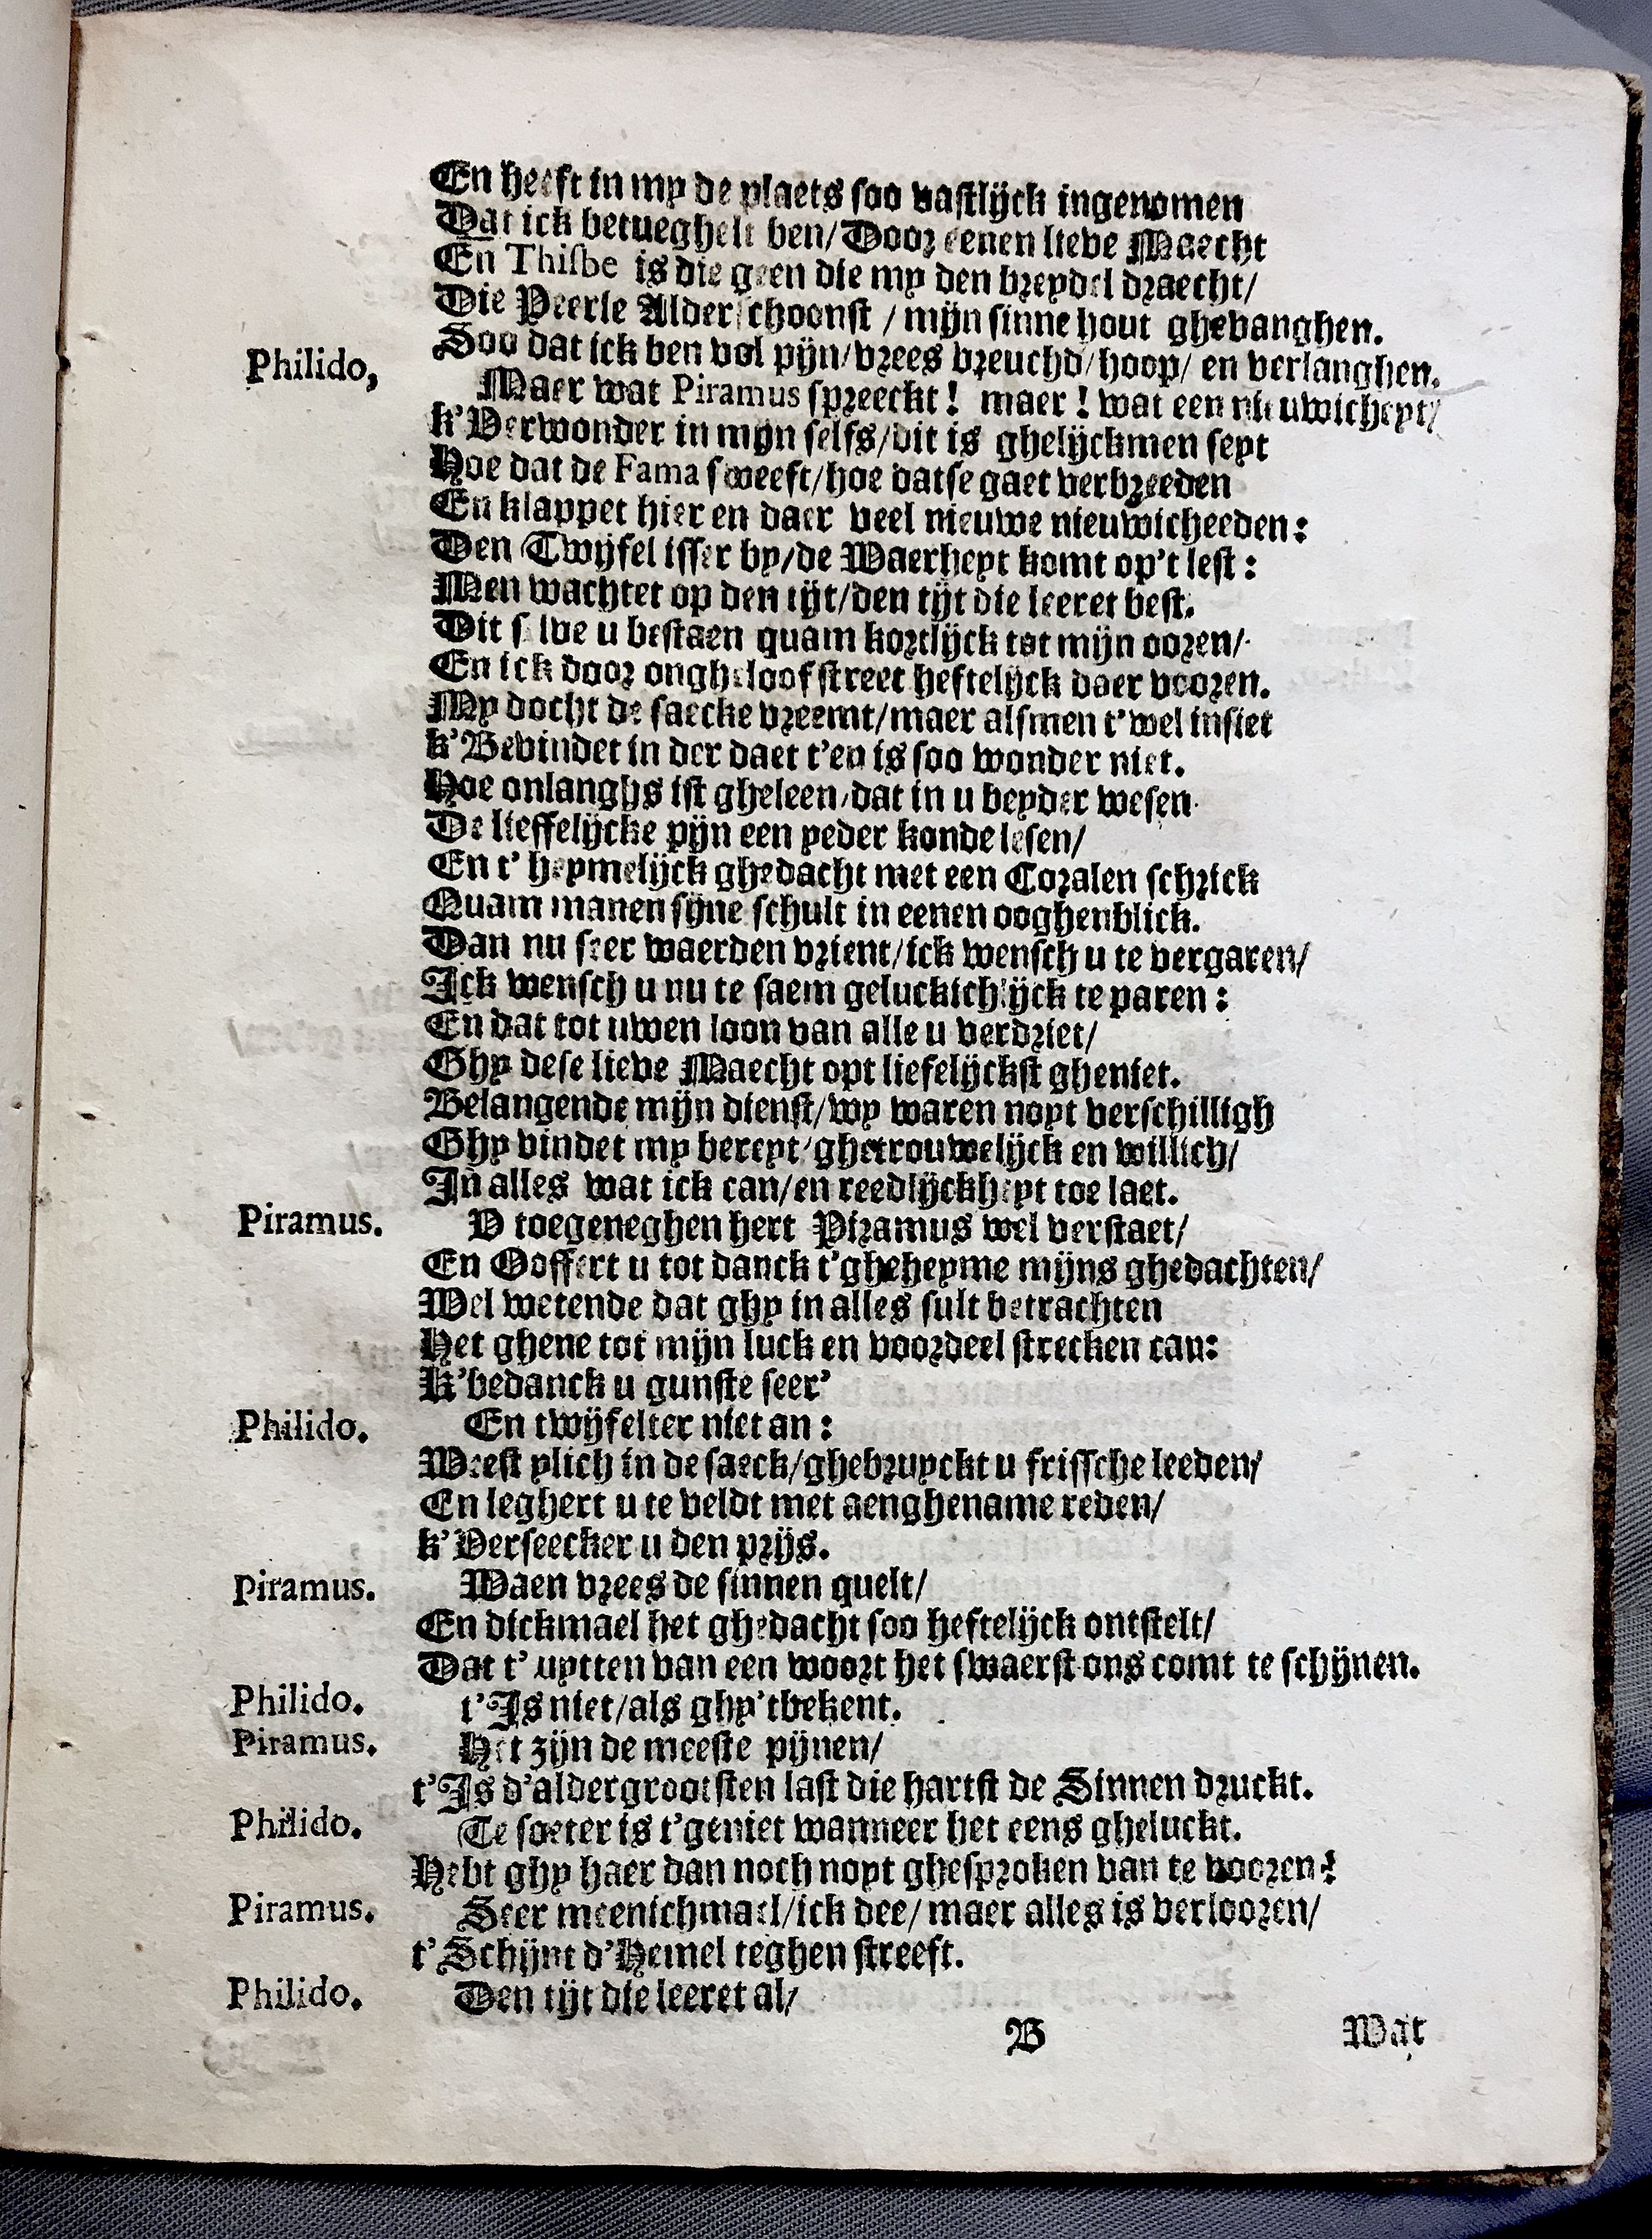 En heeft in my de plaets soo vastlijck ingenomen
Dat ick betueghelt ben/ Door eenen lieve Maecht
En Thisbe is die geen die my den breydel draecht/
Die Peerle Alderschoonst / mijn sinne hout ghevanghen.
Soo dat ick ben vol pijn/vrees vreuchd/hoop/ en verlanghen.
Philido, Maer wat Piramus spreeckt! maer! wat een nieuwicheyt/
k'Verwonder in mijn selfs/dit is ghelijckmen seyt
Hoe dat de Fama sweeft/hoe datse gaet verbreeden
En klappet hier en daer veel nieuwe nieuwicheeden:
Den Twijfel isser by/de Waerheyt komt op't lest:
Men wachtet op den tijt/den tijt die leeret best.
Dit selve u bestaen quam kortlijck tot mijn ooren/
En ick door ongheloof street heftelijck daer vooren.
My docht de saecke vreemt/maer alsmen t'wel insiet
k'Bevindet in der daet t'en is soo wonder niet.
Hoe onlanghs ist gheleen/dat in u beyder wesen
De lieffelijcke pijn een yeder konde lesen/
En t' heymelijck ghedacht met een Coralen schrick
Quam manen sijne schult in eenen ooghenblick.
Dan nu seer waerden vrient/ick wensch u te vergaren/
Ick wensch u nu te saem geluckichlijck te paren:
En dat tot uwen loon van alle u verdriet/
Ghy dese lieve Maecht opt liefelijckst gheniet.
Belangende mijn dienst/wy waren noyt verschilligh
Ghy vindet my bereyt/ghetrouwelijck en willich/
In alles wat ick can/en reedlijckheyt toe laet.
Piramus. V toegeneghen hert Piramus wel verstaet/
En Ooffert u tot danck t'gheheyme mijns ghedachten/
Wel wetende dat ghy in alles sult betrachten
Het ghene tot mijn luck en voordeel strecken can:
K'bedanck u gunste seer'
Philido. En twijfelter niet an:
Weest vlich in de saeck/ghebruyckt u frissche leeden/
En leghert u te veldt met aenghename reden/
k'Verseecker u den prijs.
Piramus. Waen vrees de sinnen quelt/
En dickmael het ghedacht soo heftelijck ontstelt/
Dat t' uytten van een woort het swaerst ons comt te schijnen.
Philido. t'Is niet/als ghy'tbekent.
Piramus. Het zijn de meeste pijnen/
t'Is d'aldergrootsten last die hartst de Sinnen druckt.
Philido. Te soeter is t'geniet wanneer het eens gheluckt.
Hebt ghy haer dan noch noyt ghesproken van te vooren?
Piramus. Seer meenichmael/ick dee/ maer alles is verlooren/
t'Schijnt d'Hemel teghen streeft.
Philido. Den tijt die leeret al/
B Wat